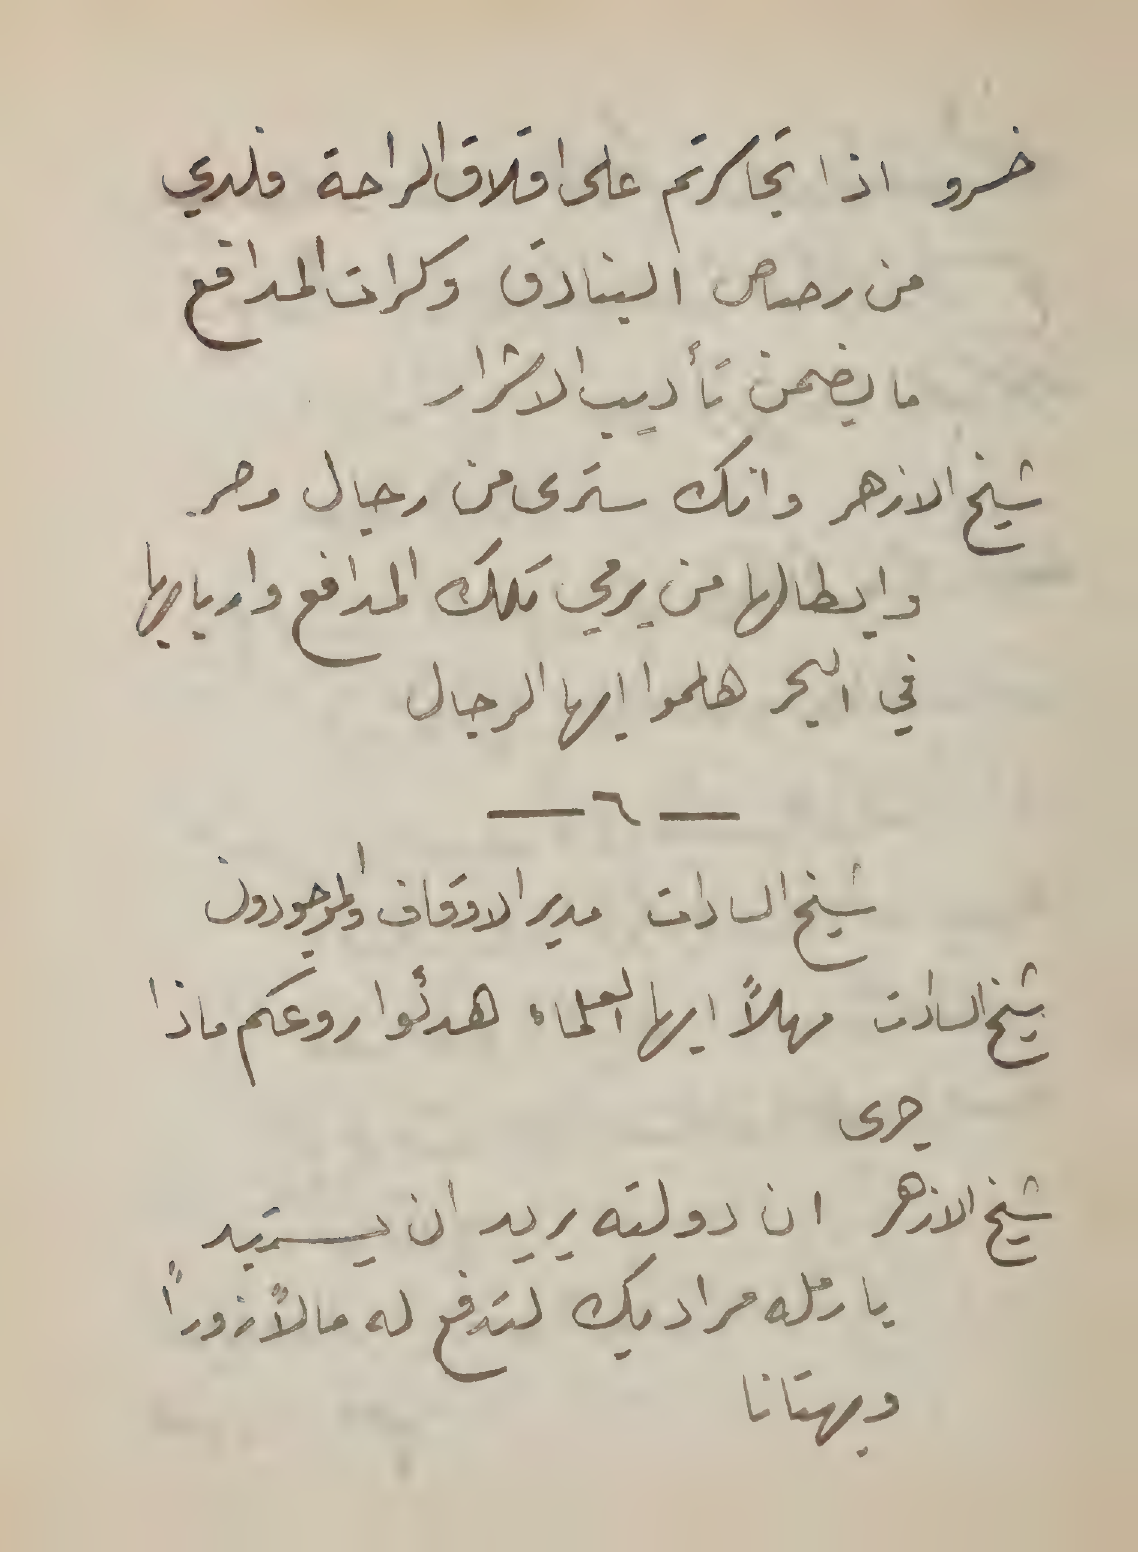 خسرو اذا تجاسرتم على اقلاق الراحة فلدي
من رصاص البنادق وكرات المدافع
ما يضمن تأديب الاشرار
شيخ الازهر وانك سترى من رجال مصر
وابطالها من يرمي تلك المدافع واربابها
في البحر هلموا ايها الرجال
— ٦ —
شيخ السادات مدير الاوقاف والموجودون
شيخ السادات مهلاً ايها العلماء هدئوا روعكم ماذا
جرى
شيخ الازهر ان دولته يريد ان يستبد
بارملة مراد بك لتدفع له مالاً زوراً
وبهتانا